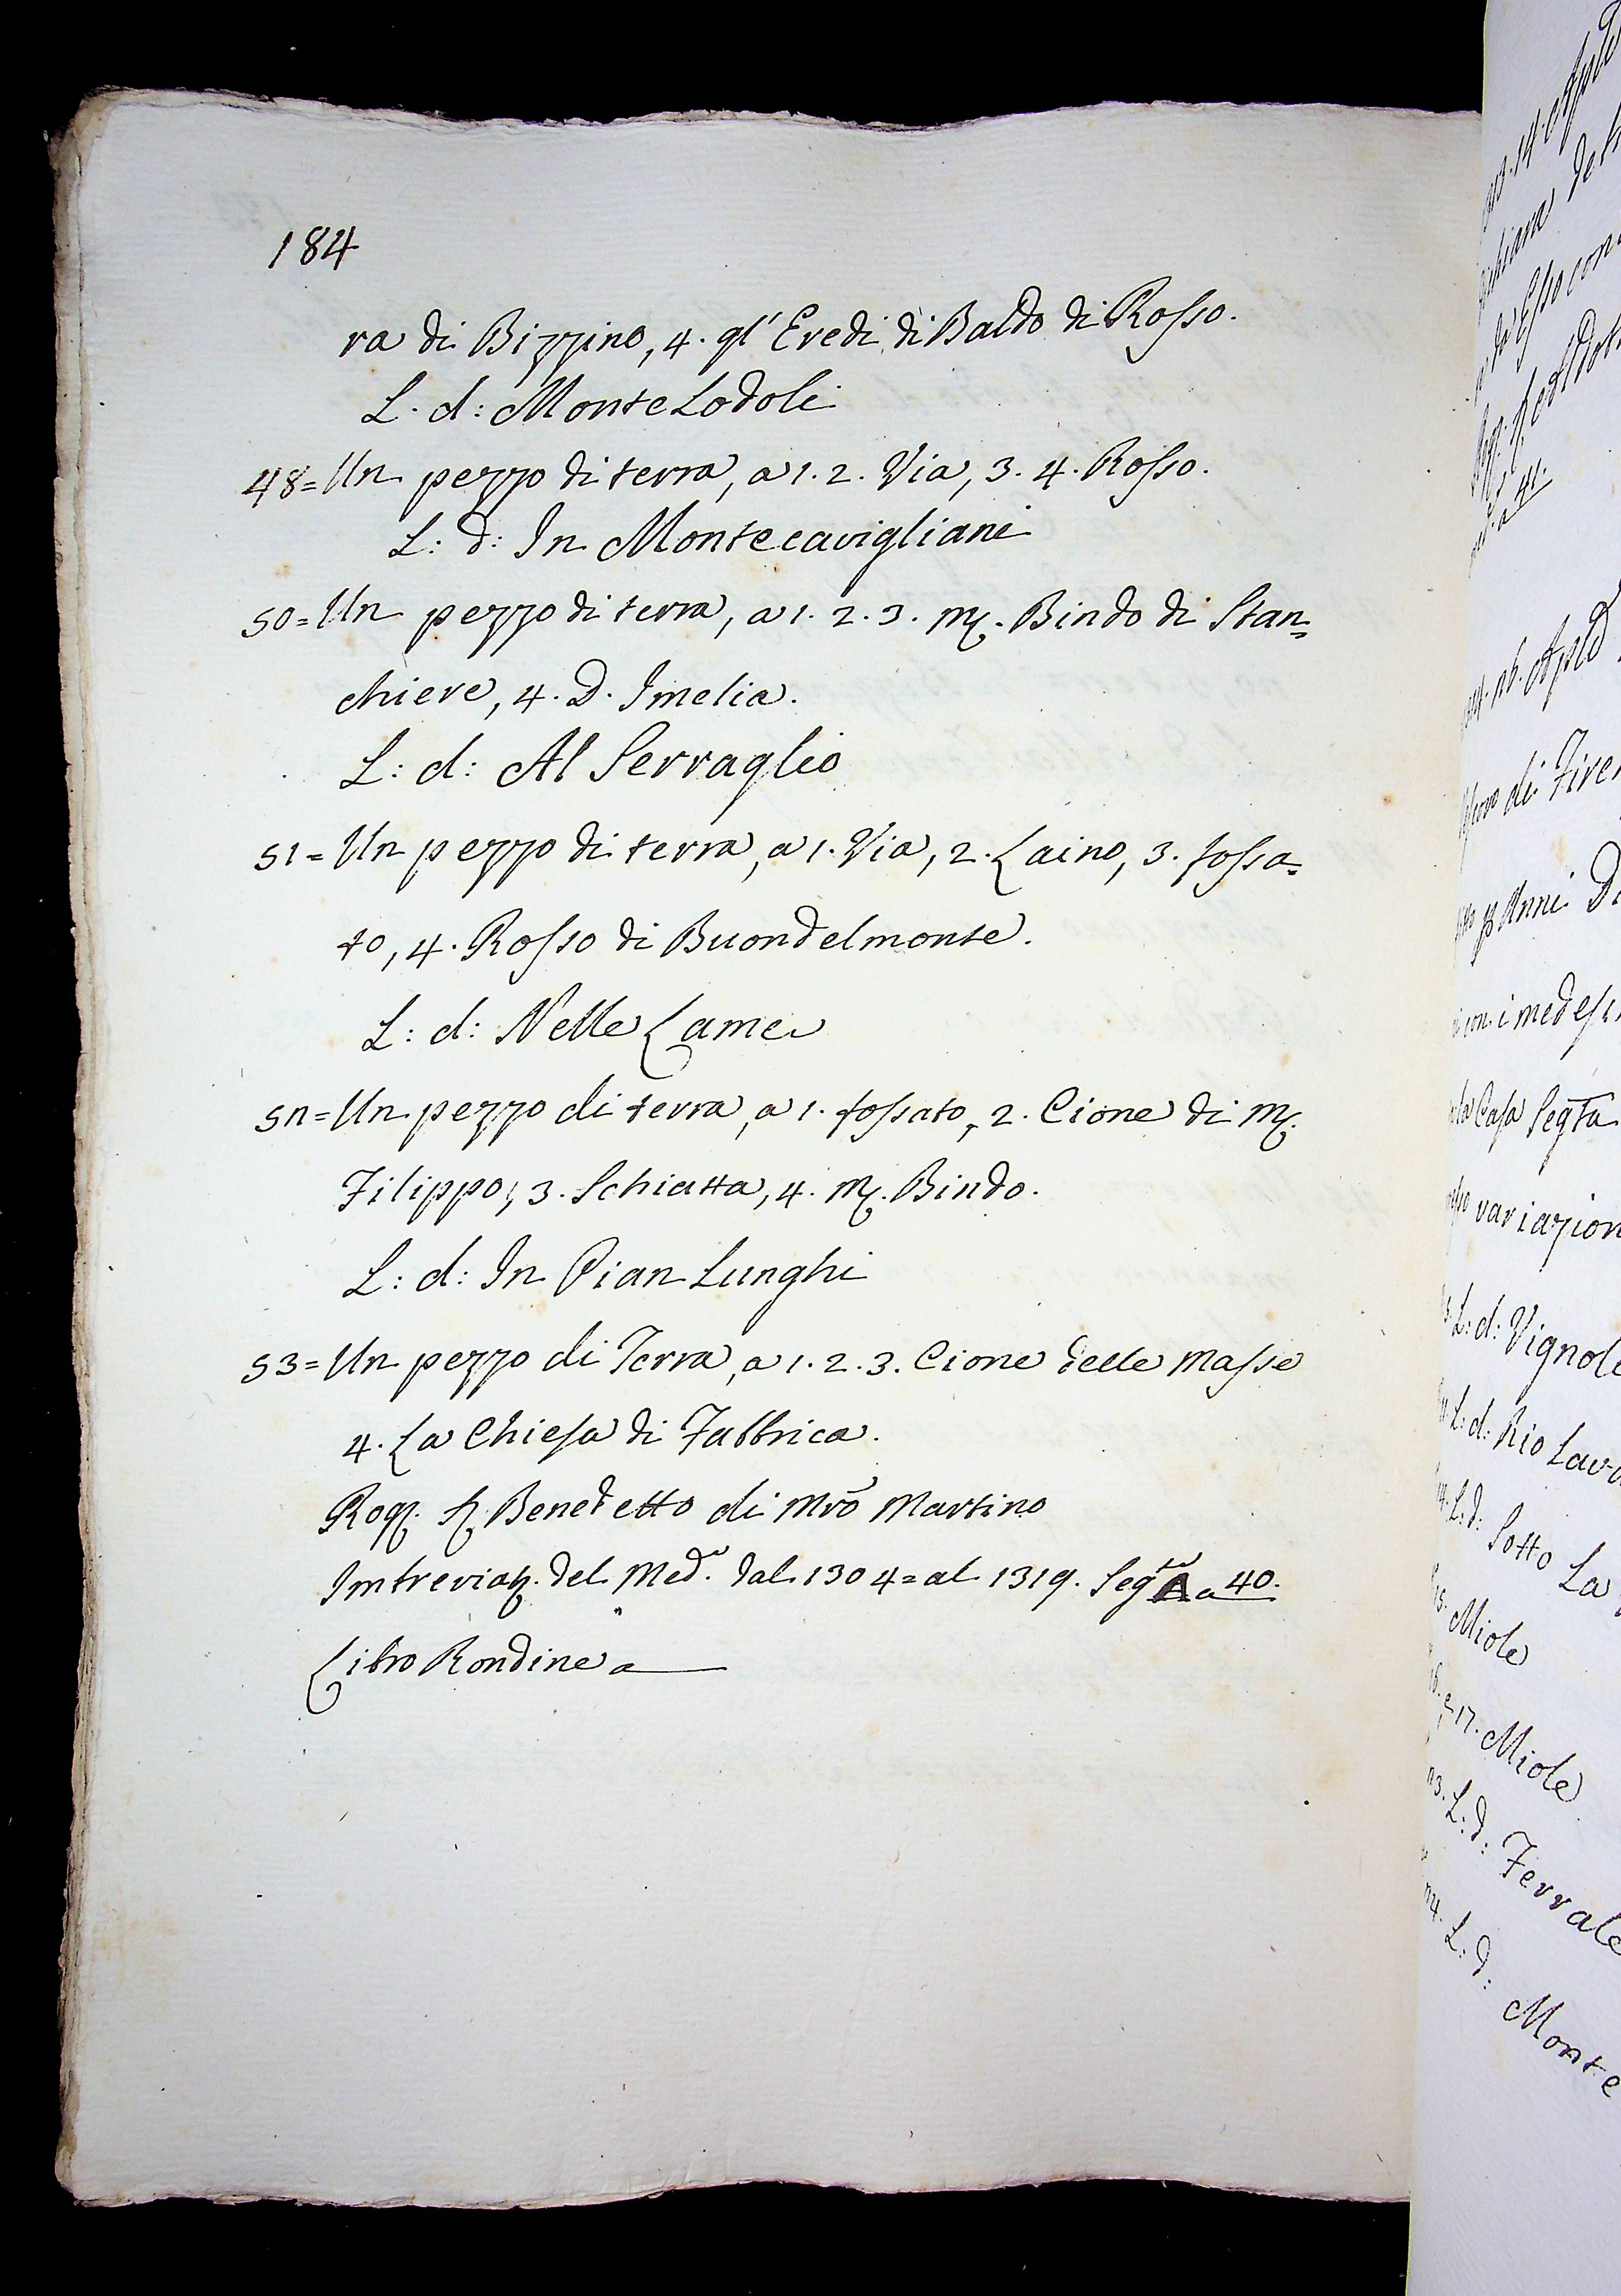 184
ra di Bizzino, 4. gl' Eredi di Baldo di Rosso.
L. d: Monte Lodoli
48= Un pezzo di terra, a 1. 2. Via, 3. 4. Rosso.
L: d: In Montecavigliani
50= Un pezzo di terra, a 1. 2. 3. M. Bindo di Stan=
chiere, 4. D. Imelia.
L: d: Al Serraglio
51= Un pezzo di terra, a 1. Via, 2. Laino, 3. fossa=
to, 4. Rosso di Buondelmonte.
L: d: Nelle Lame
52= Un pezzo di terra, a 1. fossato, 2. Cione di M.
Filippo, 3. Schiatta, 4. M. Bindo.
L: d: In Pian Lunghi
53= Un pezzo di Terra, a 1. 2. 3. Cione delle Masse
4. La Chiesa di Fabbrica.
Rog. S. Benedetto di Mro Martino
Imbreviaz. del Med.o dal 1304= al 1319. Seg.to A a 40.
Libro Rondine a
di Fire
Anni
con i medesi
la Casa Seg.ta
variazion
L: d: Vignole
L: d: Rio Lav
L: d: Sotto La
15. Miole
16. e 17. Miole
L: d: Ferrale
L: d: Monte